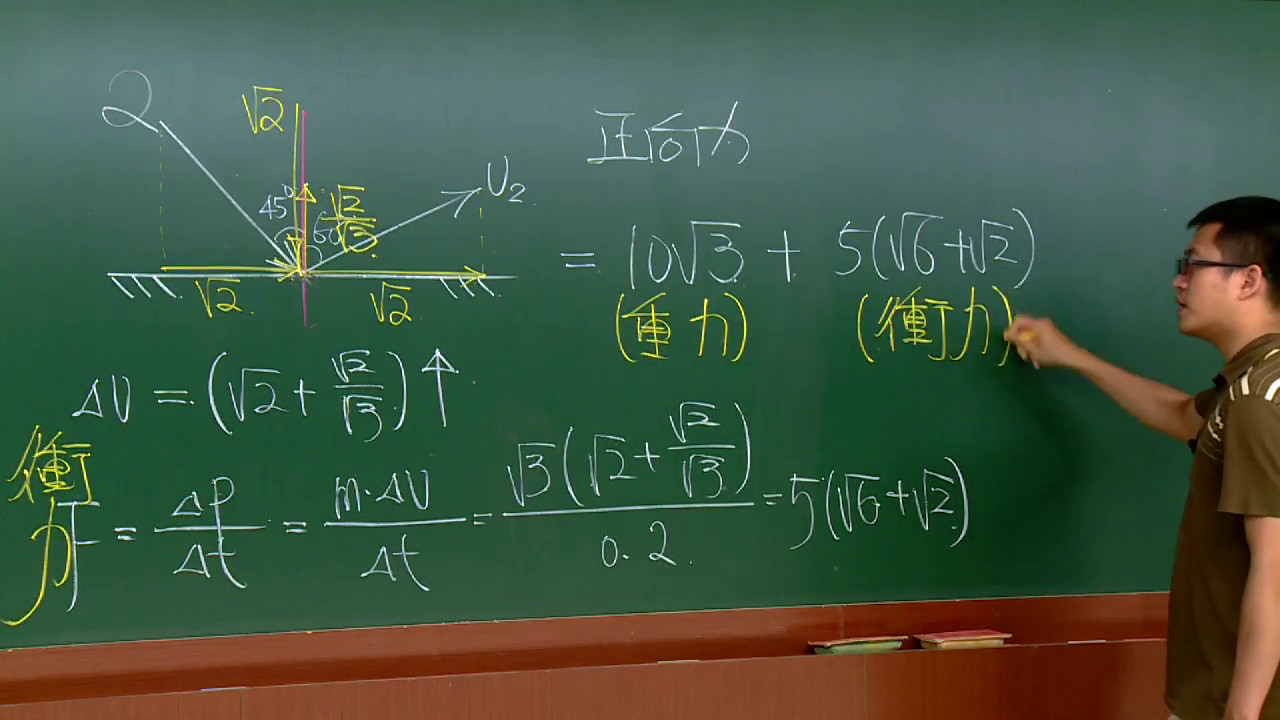 2
√2
45°
60°
√2/√3
U₂
√2
√2
正向力
= 10√3 + 5(√6+√2)
(重力)
(衝力)
ΔU = (√2 + √2/√3)↑
衝力
F = Δp/Δt = m·ΔU/Δt = √3(√2 + √2/√3)/0.2 = 5(√6+√2)